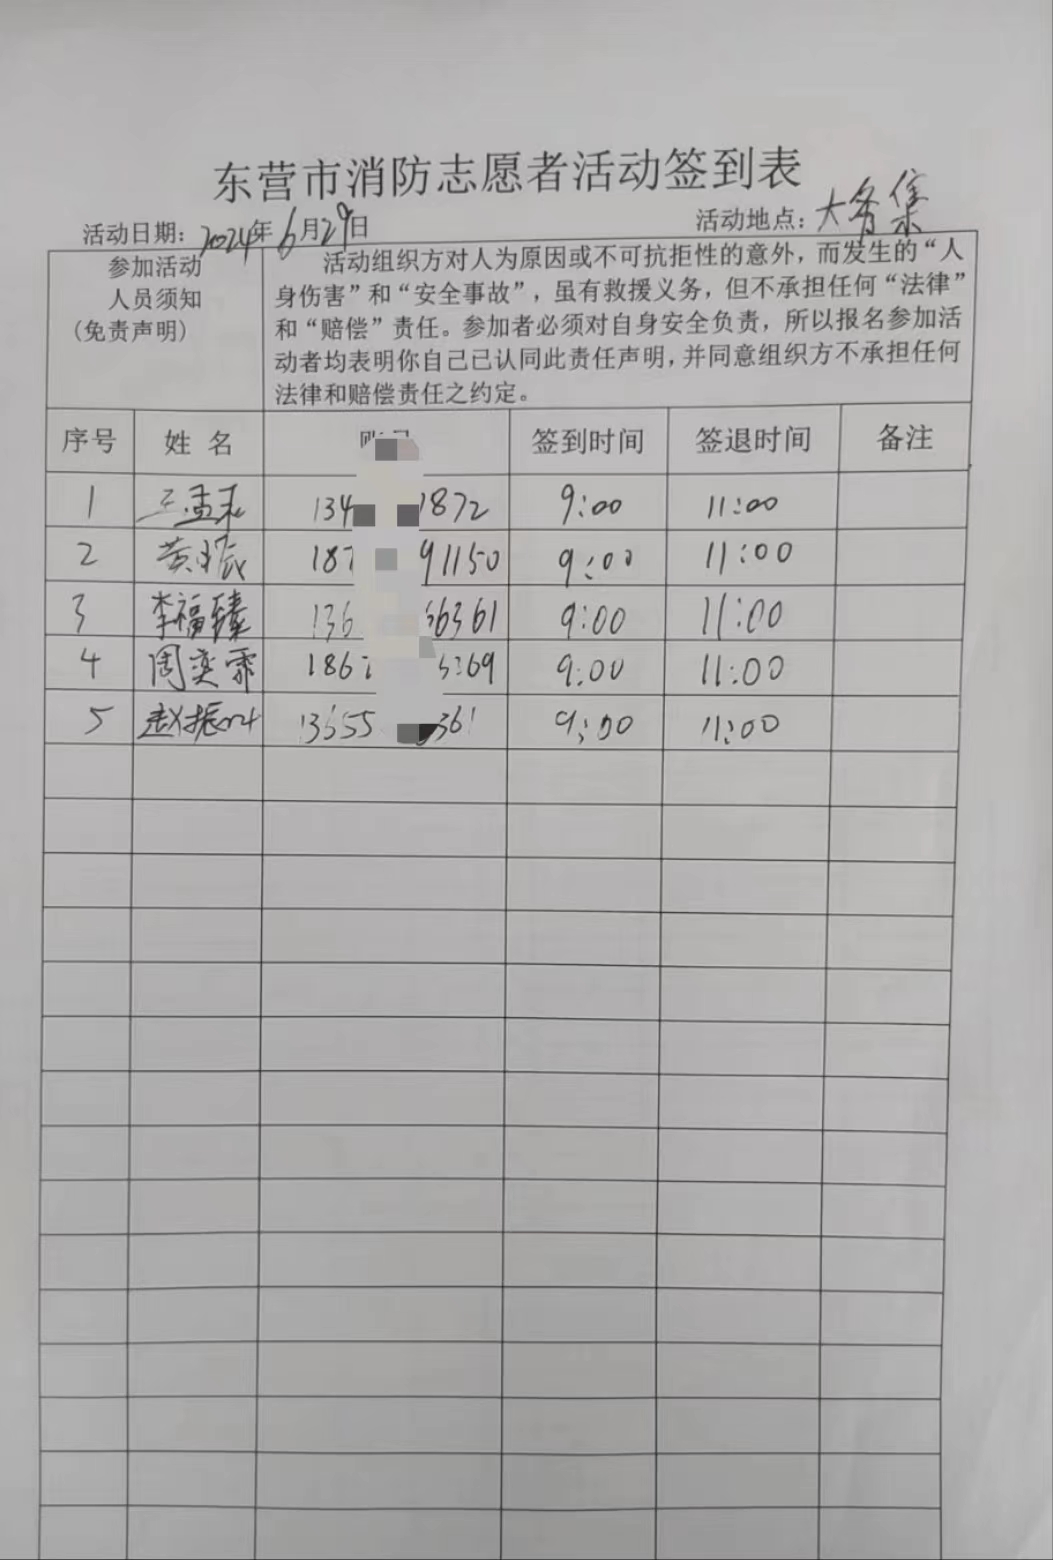 东营市消防志愿者活动签到表
活动日期：2024年6月29日 活动地点：大 集
参加活动
人员须知
(免责声明)
活动组织方对人为原因或不可抗拒性的意外，而发生的“人
身伤害”和“安全事故”，虽有救援义务，但不承担任何“法律”
和“赔偿”责任。参加者必须对自身安全负责，所以报名参加活
动者均表明你自己已认同此责任声明，并同意组织方不承担任何
法律和赔偿责任之约定。
序号 姓名 签到时间 签退时间 备注
1 王孟 134 1872 9:00 11:00
2 黄 187 91150 9:00 11:00
3 李福臻 136 66361 9:00 11:00
4 周奕霏 186 3369 9:00 11:00
5 赵振 13655 361 9:00 11:00